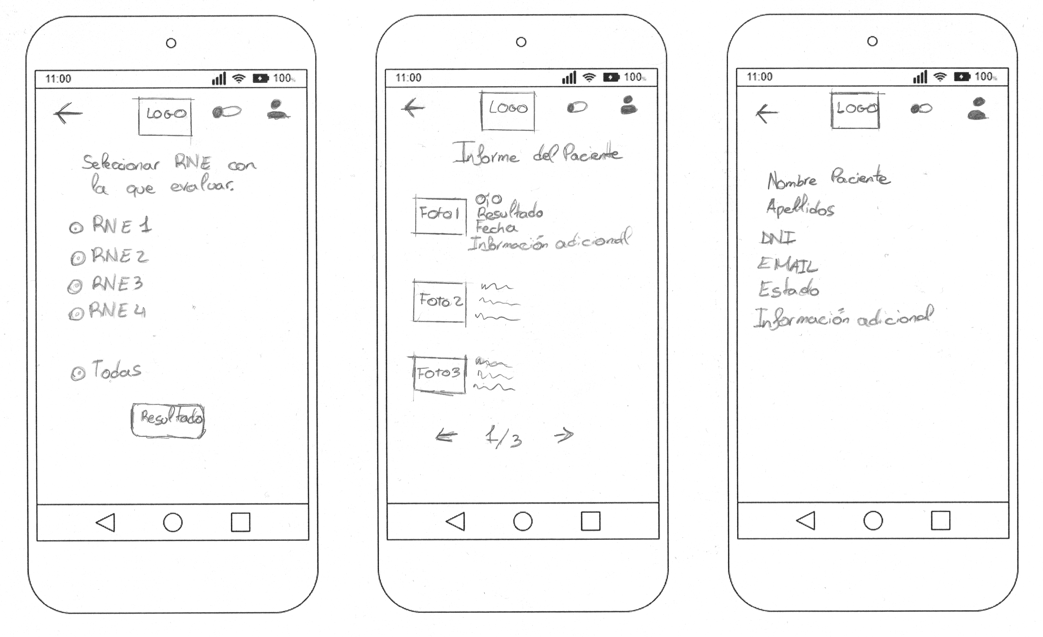 11:00
100%
LOGO
Seleccionar RNE con
la que evaluar.
RNE 1
RNE 2
RNE 3
RNE 4
Todas
Resultado
11:00
100%
LOGO
Informe del Paciente
Foto 1
Ojo
Resultado
Fecha
Información adicional
Foto 2
Foto 3
1/3
11:00
100%
LOGO
Nombre Paciente
Apellidos
DNI
EMAIL
Estado
Información adicional